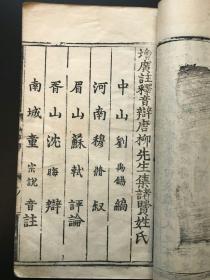 增廣註釋音辯唐柳先生集諸賢姓氏
中山劉 禹錫 編
河南穆 脩 叙
眉山蘇 軾 評論
胥山沈 晦 辯
南城童 宗說 音註